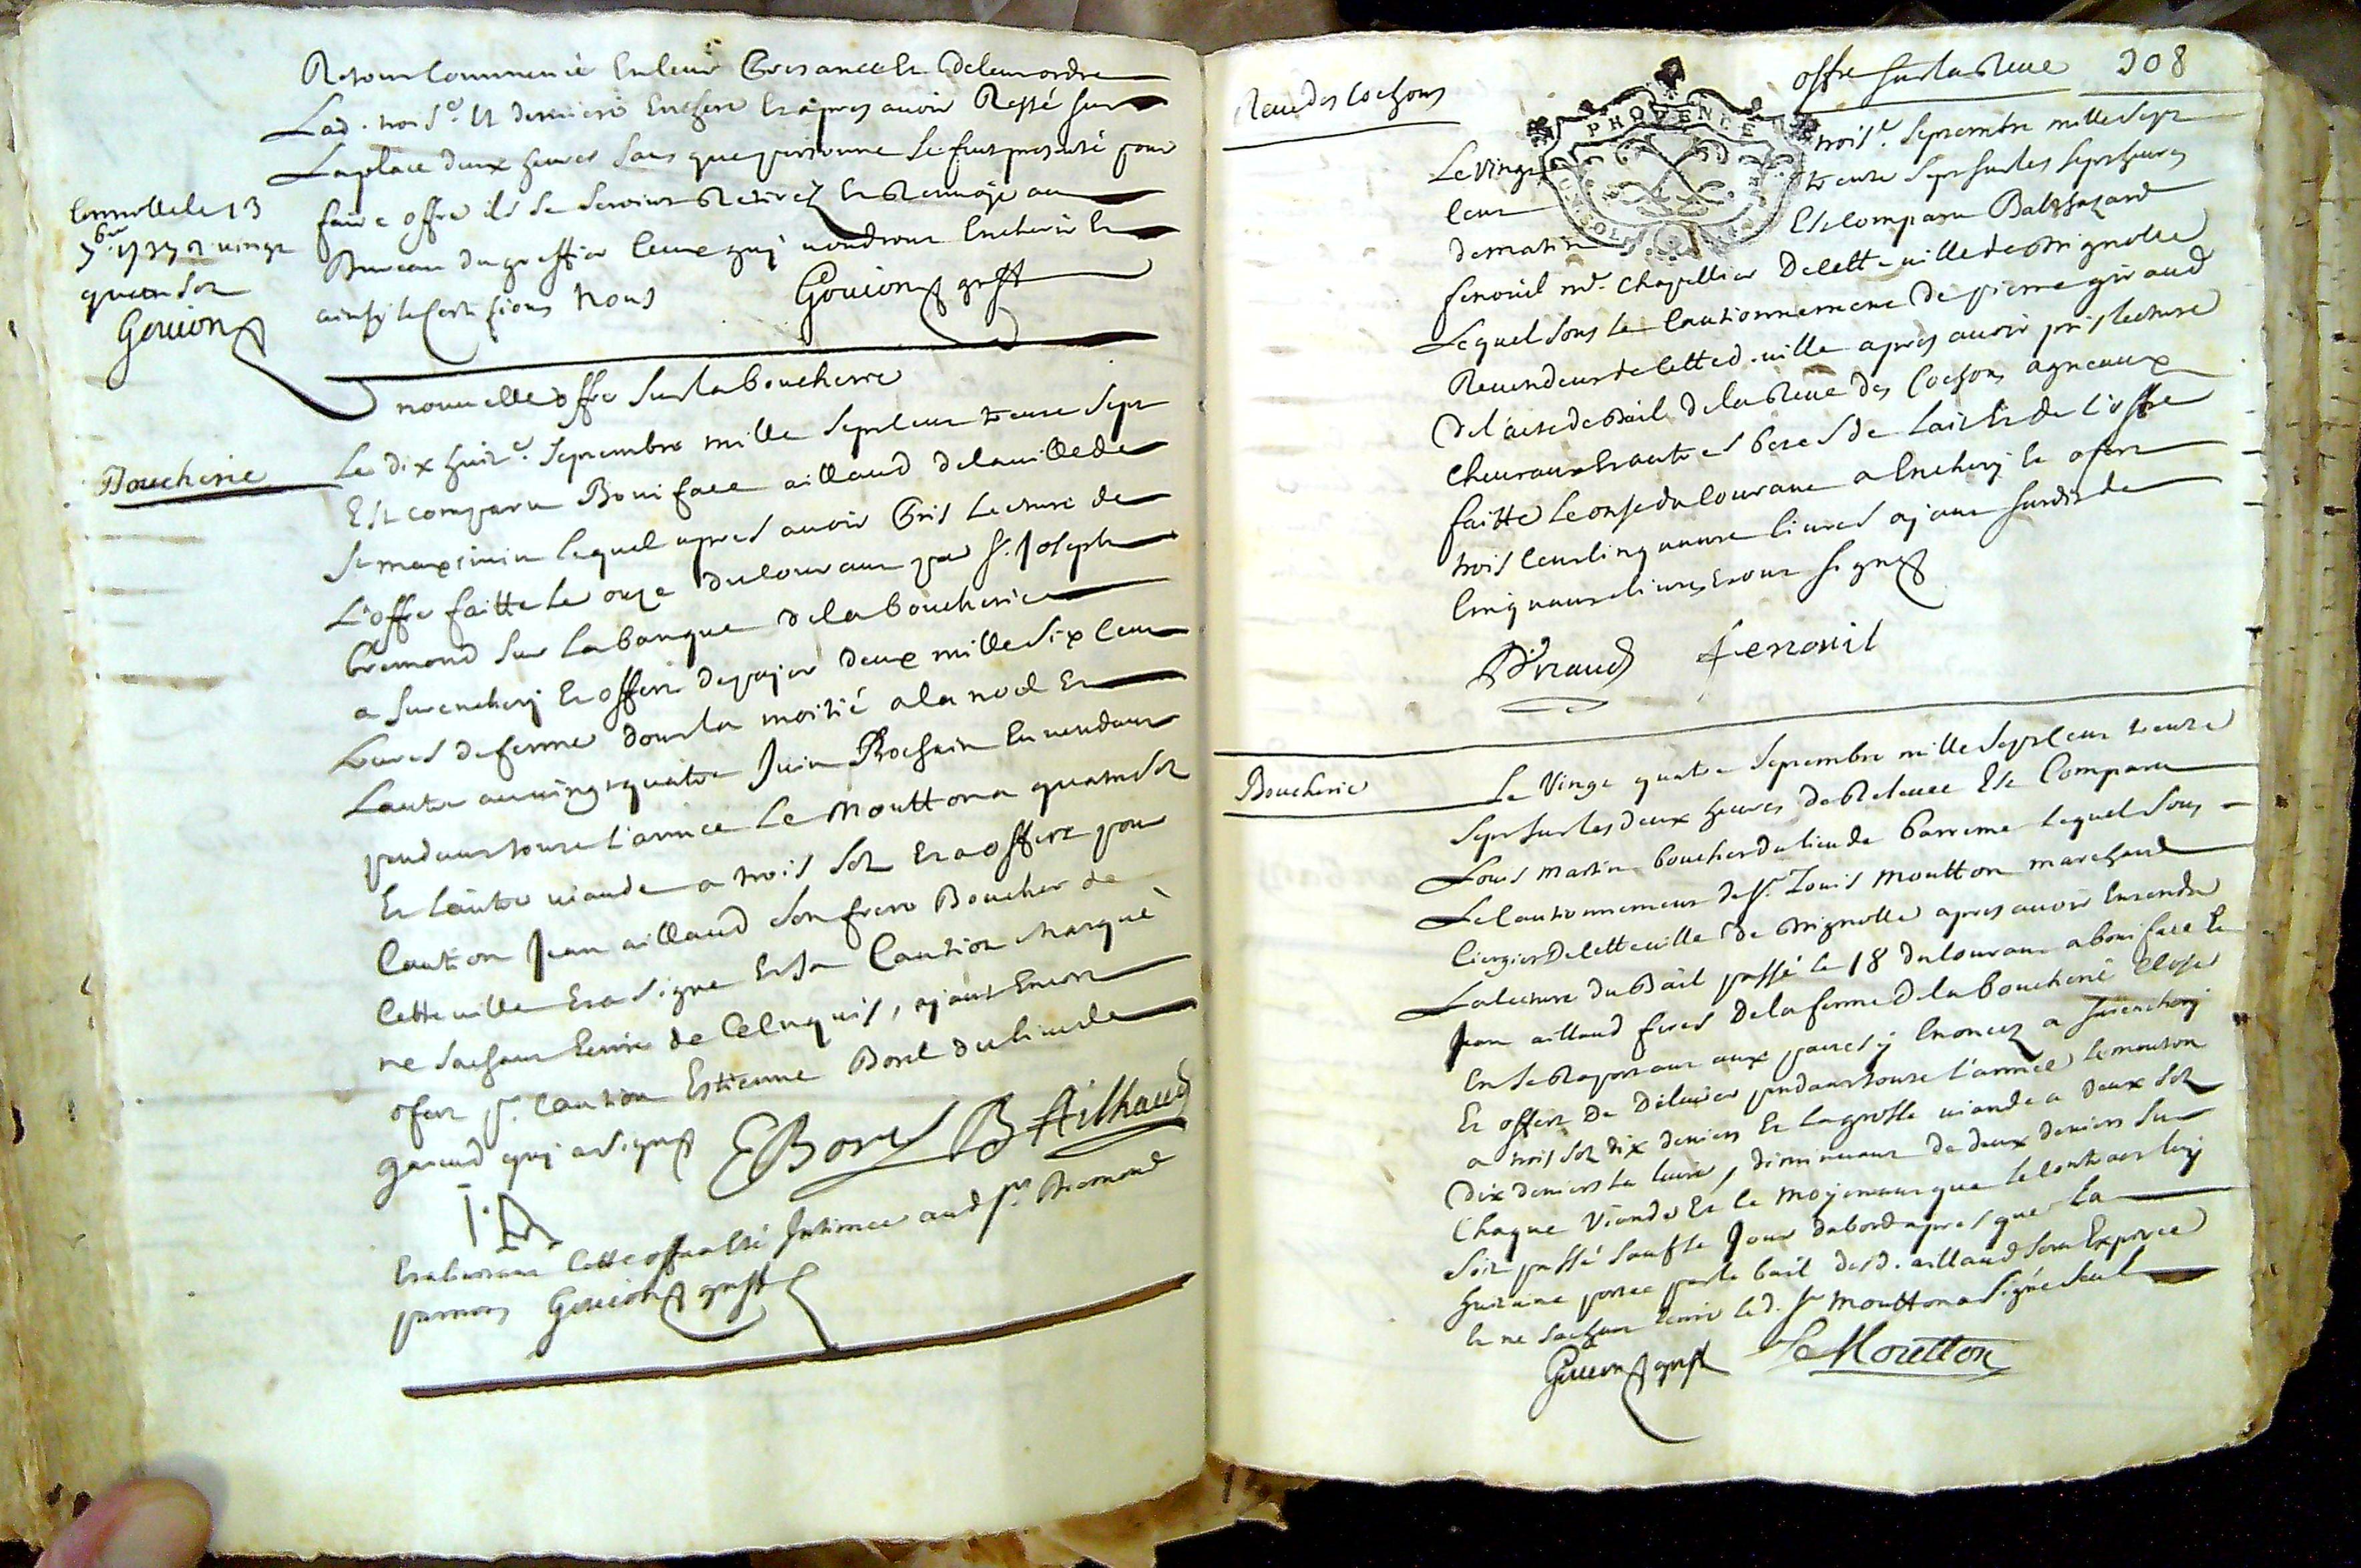 Retour Commenié En leur Presance Et de leur ordre
Lad. trois.e Et derniere Enchere Et apres avoir Resté sur
La place deux heures sans que personne se fut presenté pour
faire offre ils se seroient Retirez Et Renvoÿé au
Bureau du greffier Ceux quj voudront Encherir Et
ainsy le Certifions Nous Gouion greff
Conrolle le 13
9bre 1737 a vingt
quatre sols
Gouion
nouvelle offre sur la boucherie
Boucherie
Le dix huit.e Septembre mille sept cent trente sept
Est comparu Boniface aillaud de la ville de
St maximin lequel apres avoir Pris Lecture de
L'offre faitte le onze du courant par Sr. Joseph
Bremond sur la banque de la boucherie
a surencherj Et offert de païer deux mille six Cent
Livres de ferme dont la moitié a la noel Et
Lautre au vingt quatre Juin Prochain En vendant
pendant toute l'année Le Moutton a quatre sols
Et l'autre viande a trois sols Et a offert pour
Caution Jean aillaud son frere Boucher de
Cette ville Et a signé Et sa Caution Marqué
ne sachant Ecrire de Ce Enquis, ayant Encore
ofert pr. Caution Estienne Borel du lieu de
gareud quj a signé EBorel B Ailhaud
I. A
Et a linstant Cette offre a Esté Intimée aud sr. Bremond
par nous Gouion greff
offre sur la Reve 308
Reve des Cochons
PROVENCE
Le Vingt trois.e Septembre mille sept
Cent trente sept sur les sept heures
de matin Est Comparu Balthazard
fenouil md. Chapellier De cette ville de Brignolle
Lequel sous Le Cautionnement De pierre giraud
Revendeur de Cette d. ville apres avoir pris lecture
De l'acte de Bail de la Reve des Cochons agneaux
Chevraux Et autres betes de Lait Et de L'offre
faitte le onze du Courant a Encherj Et ofert
trois Cent Cinquante livres ajant surdit de
Cinquante livres Et ont signé
Giraud fenouil
Boucherie
Le Vingt quatre Septembre mille sept cent trente
Sept sur les deux heures de Relevée Est Comparu
Louis Martin boucher du lieu de Barreme Lequel sous
Le Cautionnement de sr. Louis Moutton marchand
Ciergier de cette ville de Brignolle apres avoir Entendu
La lecture du Bail passé le 18 du Courant a boniface Et
Jean aillaud freres De la ferme de la boucherie Close
En se Raportant aux pactes y Enoncez a surencherj
Et offert De Delivrer pendant toute l'année Le mouton
a trois sols dix deniers Et la grosse viande a deux sols
Dix deniers la livre, diminuant de deux deniers sur
Chaque Viande Et Ce Moyenant que le contract luy
Soit passé sauf le Jour dabord apres que La
huitaine portée par le bail desd. aillaud sera Expirée
Et ne sachant Ecrire led. sr Moutton a signé seul
Gouion greff Ls Moutton